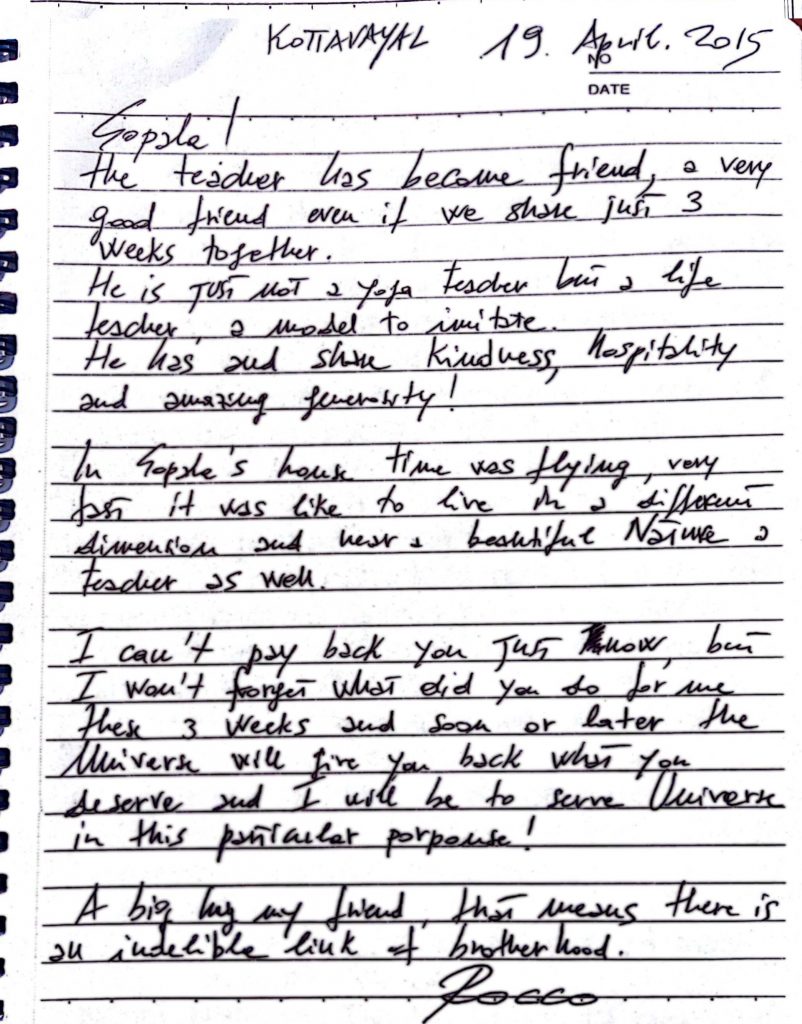 KOTTAVAYAL 19. April. 2015
NO
DATE
Gopala!
the teacher has become friend, a very
good friend even if we share just 3
weeks together.
He is just not a yoga teacher but a life
teacher, a model to imitate.
He has and share kindness, hospitality
and amazing generosity!
In Gopala's house time was flying, very
fast it was like to live in a different
dimension and near a beautiful Nature a
teacher as well.
I can't pay back you just now, but
I won't forget what did you do for me
these 3 weeks and soon or later the
Universe will give you back what you
deserve and I will be to serve Universe
in this particular porpouse!
A big hug my friend, that means there is
an indelible link of brotherhood.
Rocco